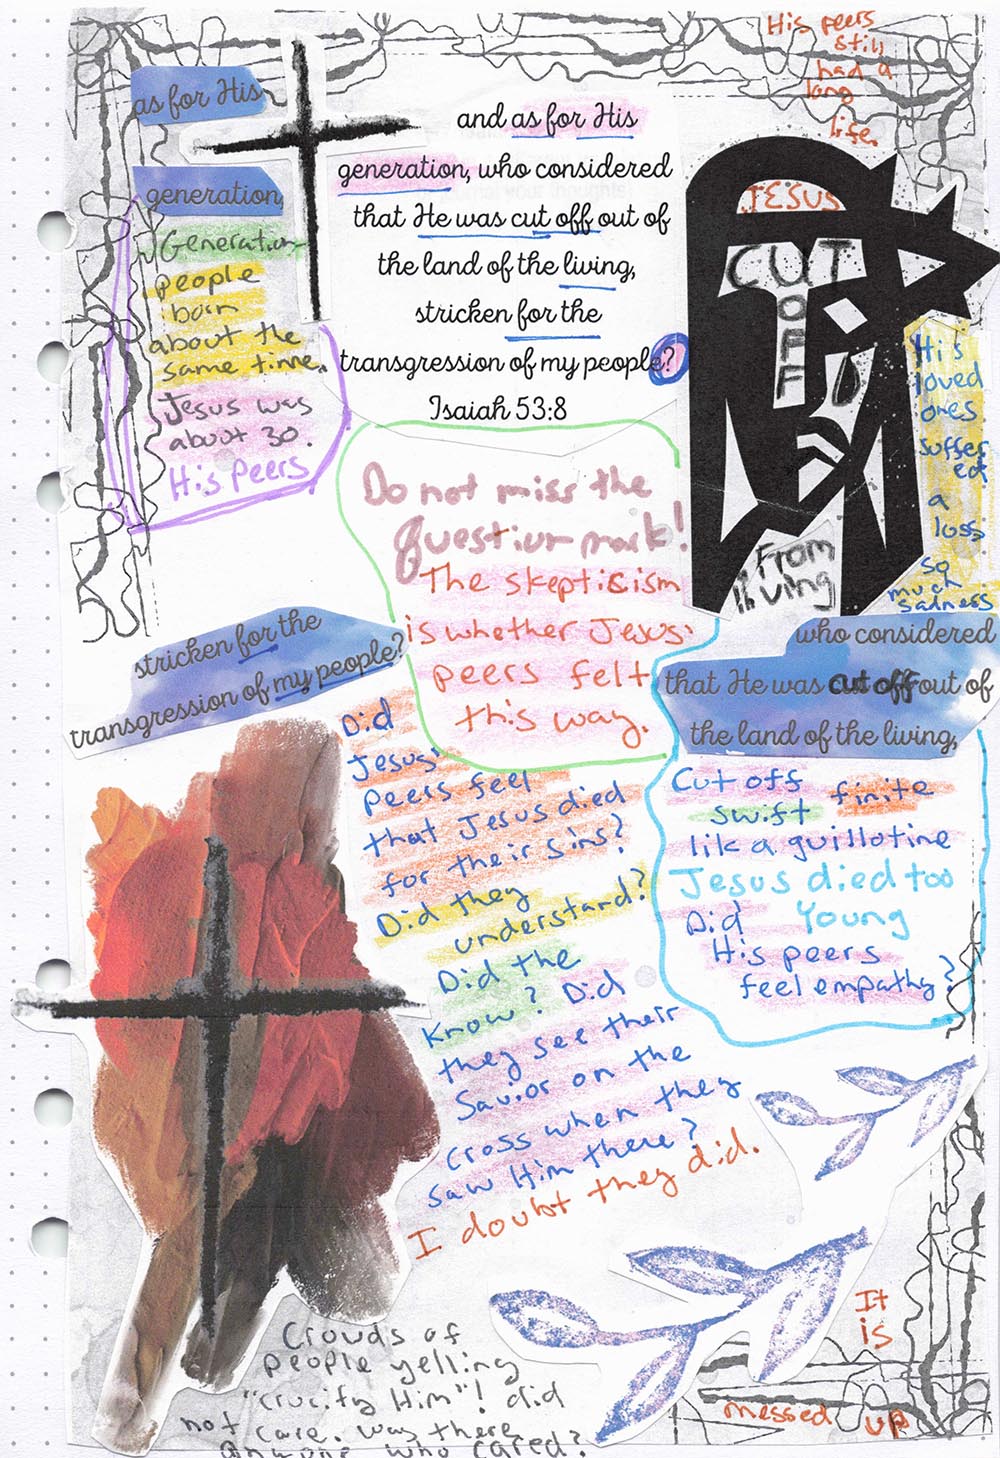 His peers
still
had a
long
life.
as for His
generation,
and as for His
generation, who considered
that He was cut off out of
the land of the living,
stricken for the
transgression of my people?
Isaiah 53:8
Generation
people
born
about the
same time.
Jesus was
about 30.
His Peers
JESUS
CUT
OFF
From
living
His
loved
ones
suffer
ed
a
loss
so
much
sadness
Do not miss the
question mark!
The skepticism
is whether Jesus'
peers felt
this way.
stricken for the
transgression of my people?
who considered
that He was cut off out of
the land of the living,
Did
Jesus'
peers feel
that Jesus died
for their sins?
Did they
understand?
Did the
know? Did
they see their
Savior on the
cross when they
saw Him there?
I doubt they did.
Cut off
swift finite
lik a guillotine
Jesus died too
young
Did
His peers
feel empathy?
Crowds of
people yelling
"crucify Him"! did
not care. Was there
anyone who cared?
It
is
messed up